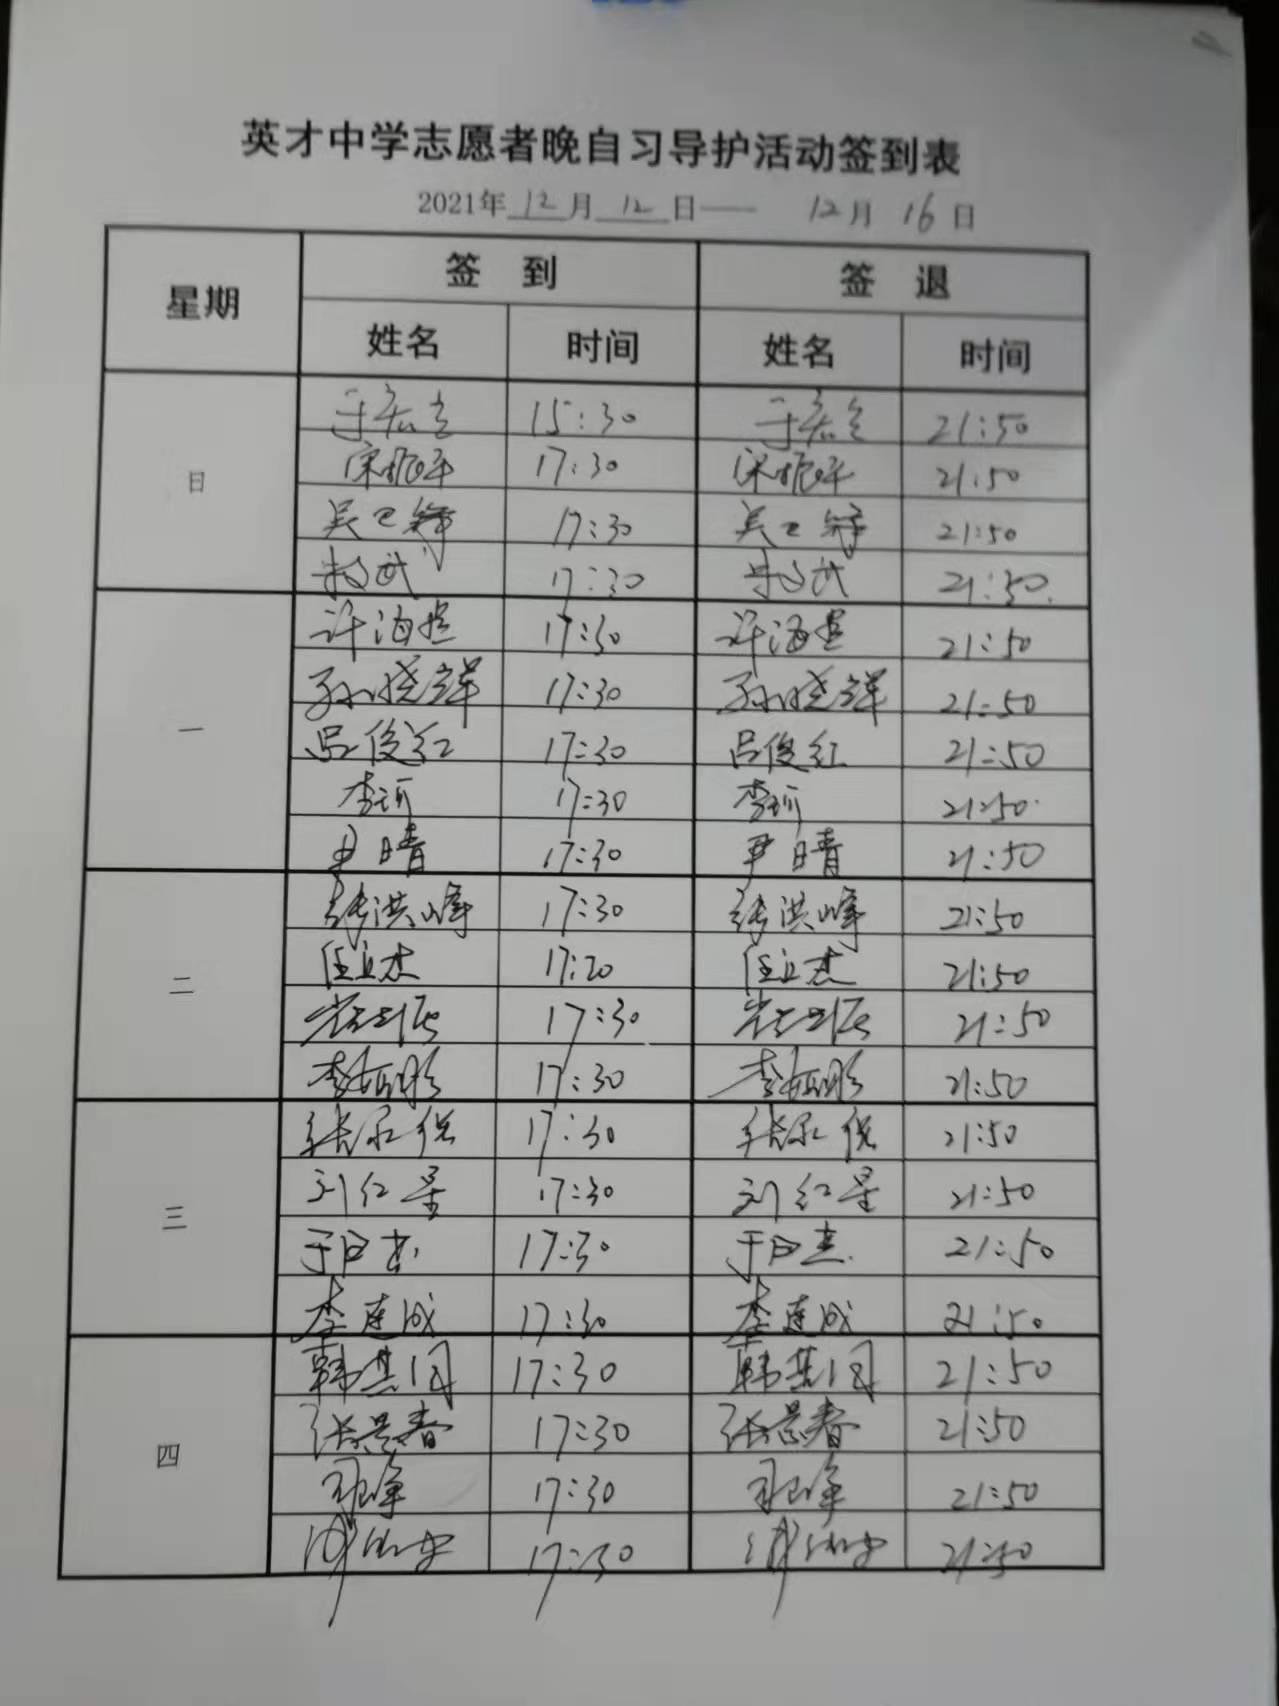 英才中学志愿者晚自习导护活动签到表
2021年 12 月 12 日—— 12月 16 日
星期 签 到 签 退
姓名 时间 姓名 时间
日 15:30 21:50
宋振平 17:30 宋振平 21:50
17:30 21:50
17:30 21:50
一 许海 17:30 许海 21:50
孙晓祥 17:30 孙晓祥 21:50
吕俊红 17:30 吕俊红 21:50
李 17:30 李 21:50
尹晴 17:30 尹晴 21:50
二 张洪峰 17:30 张洪峰 21:50
任立杰 17:20 任立杰 21:50
17:30 21:50
李 17:30 李 21:50
三 张永悦 17:30 张永悦 21:50
刘红星 17:30 刘红星 21:50
于 17:30 于 21:50
李建成 17:30 李建成 21:50
四 韩其国 17:30 韩其国 21:50
张景春 17:30 张景春 21:50
17:30 21:50
17:30 21:50